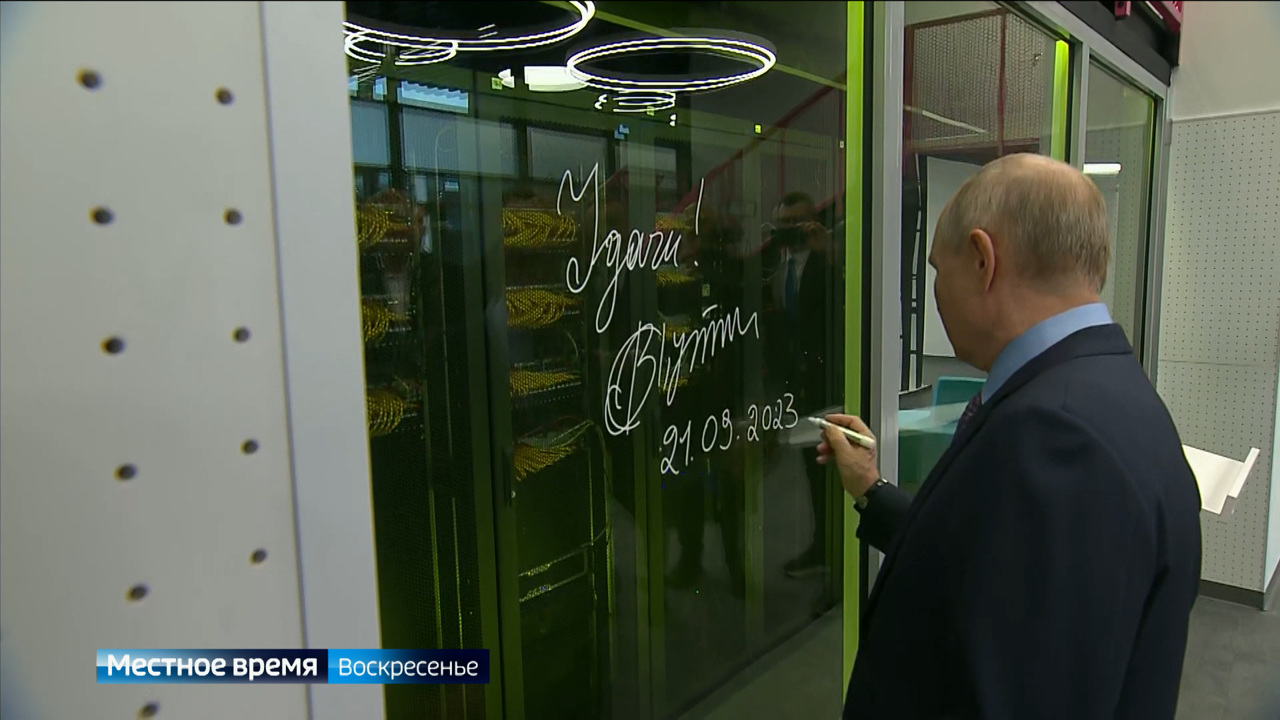 Удачи!
ВПутин
21.09.2023
Местное время Воскресенье